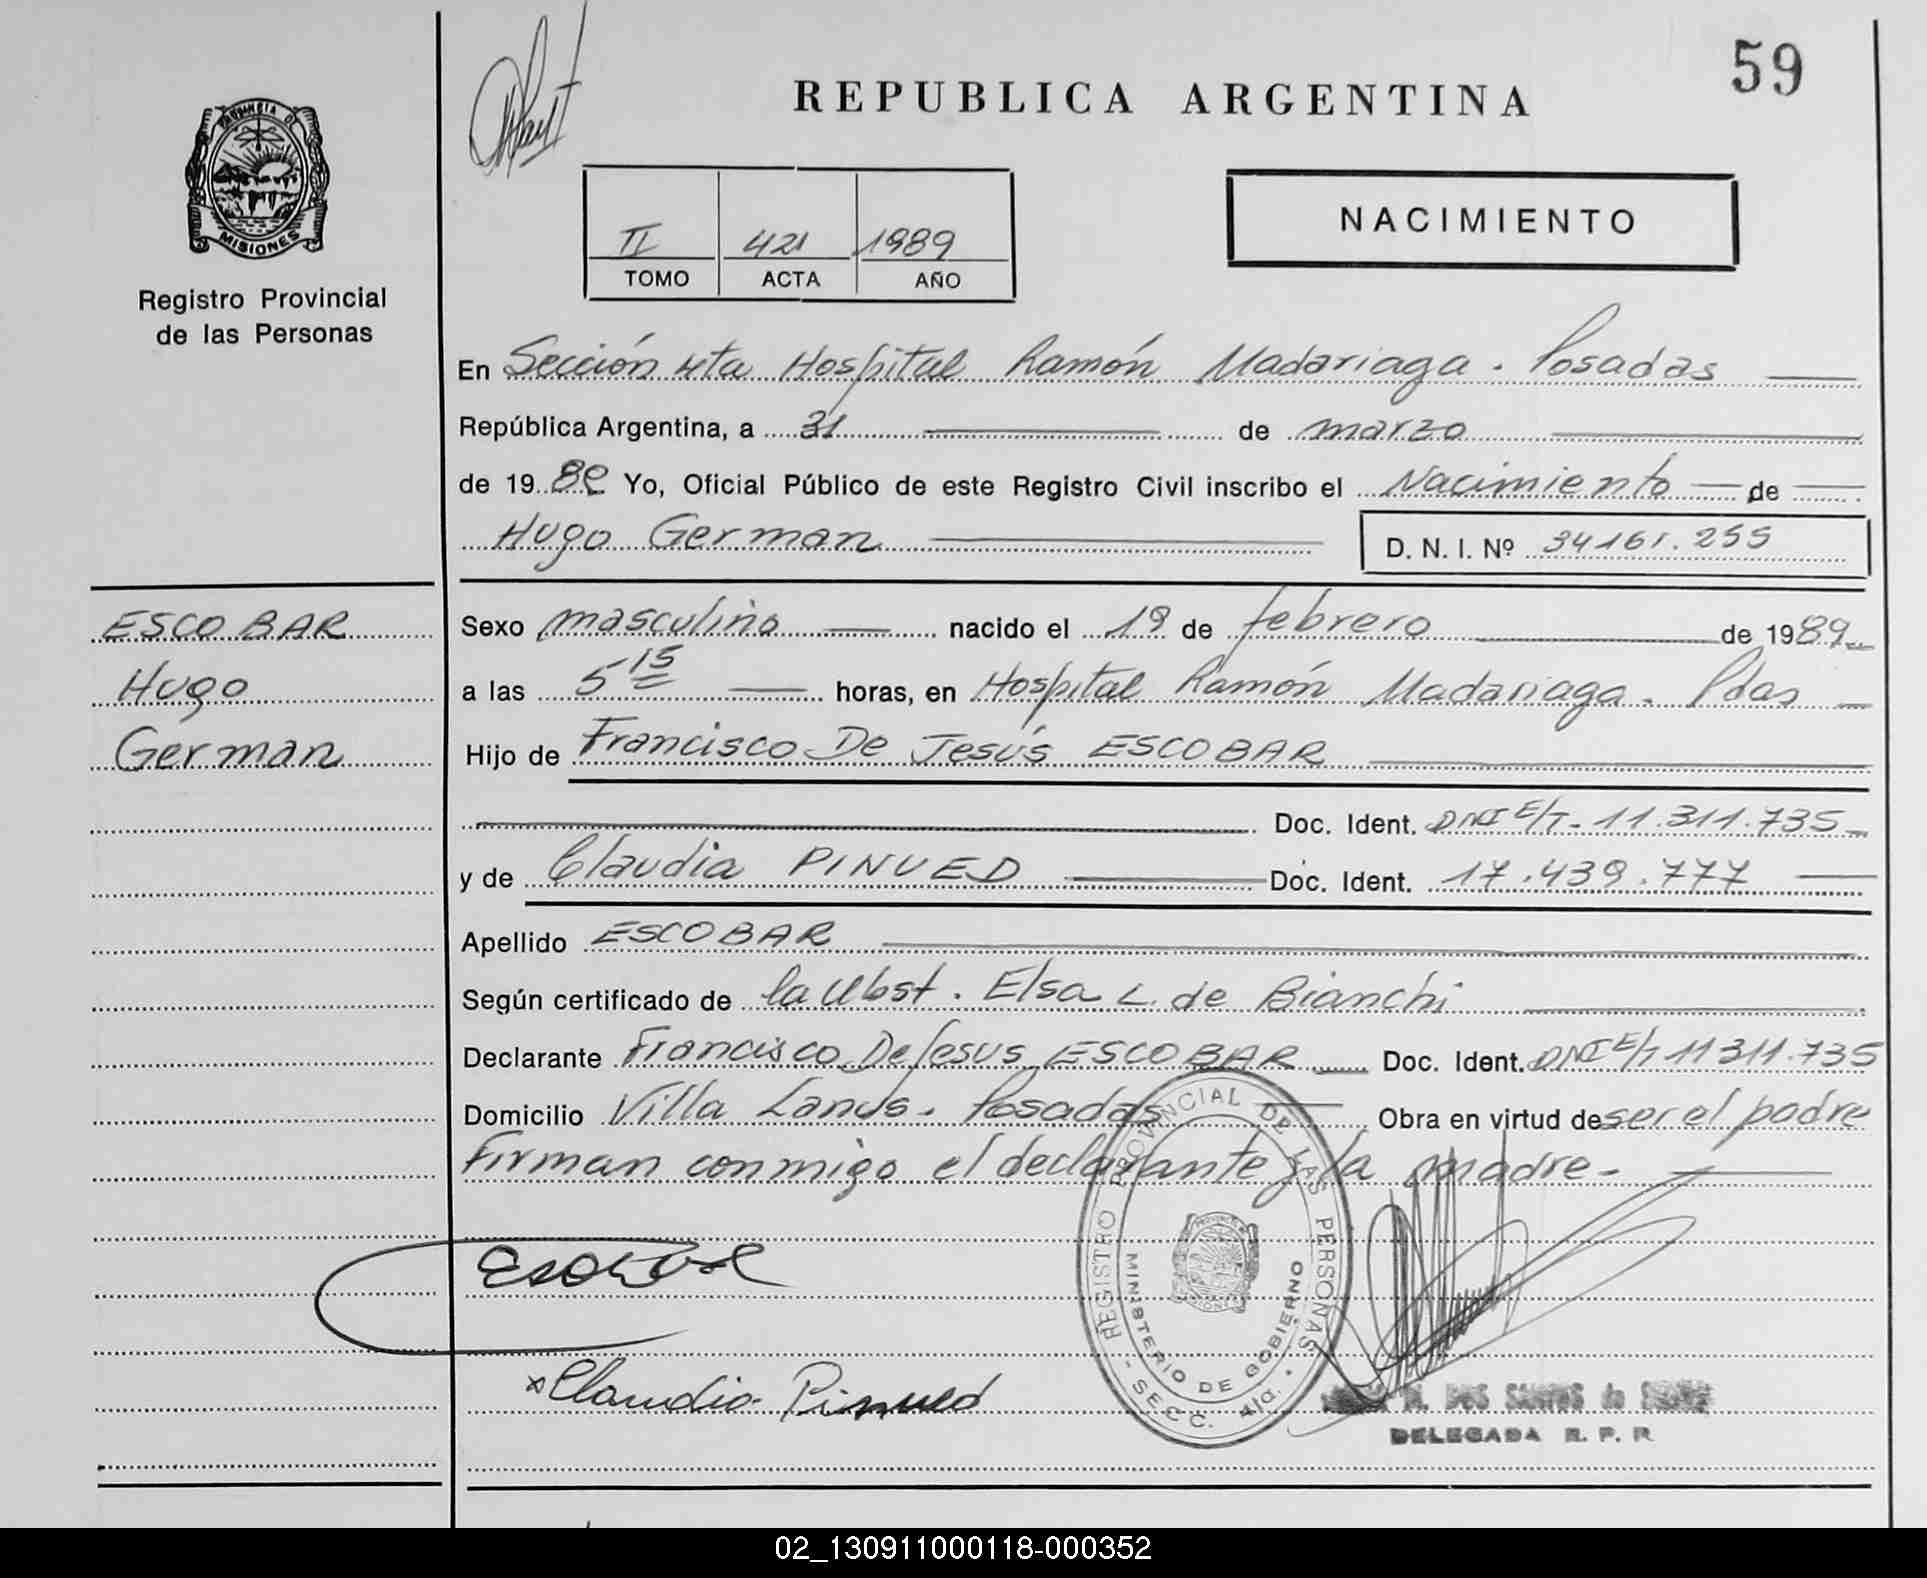 59
REPUBLICA ARGENTINA
PROVINCIA DE
MISIONES
Registro Provincial
de las Personas
II 421 1989
TOMO ACTA AÑO
NACIMIENTO
En Sección 4ta Hospital Ramón Madariaga. Posadas
República Argentina, a 31 de marzo
de 1989 Yo, Oficial Público de este Registro Civil inscribo el Nacimiento de
Hugo German D. N. I. Nº 34161.255
ESCOBAR
Hugo
German
Sexo masculino nacido el 19 de febrero de 1989
a las 5 15 horas, en Hospital Ramón Madariaga. Pdas
Hijo de Francisco De Jesús ESCOBAR
Doc. Ident. DNI E/T. 11.311.735
y de Claudia PINUED Doc. Ident. 17.439.777
Apellido ESCOBAR
Según certificado de la Obst. Elsa L. de Bianchi
Declarante Francisco De Jesus ESCOBAR Doc. Ident. DNI E/T 11311.735
Domicilio Villa Lanus. Posadas Obra en virtud de ser el padre
Firman conmigo el declarante y la madre.
Escobar
x Claudia Pinued
REGISTRO PROVINCIAL DE LAS PERSONAS
MINISTERIO DE GOBIERNO
- SECC. 4ta. -
M. DOS SANTOS de
DELEGADA R. P. P.
02_130911000118-000352